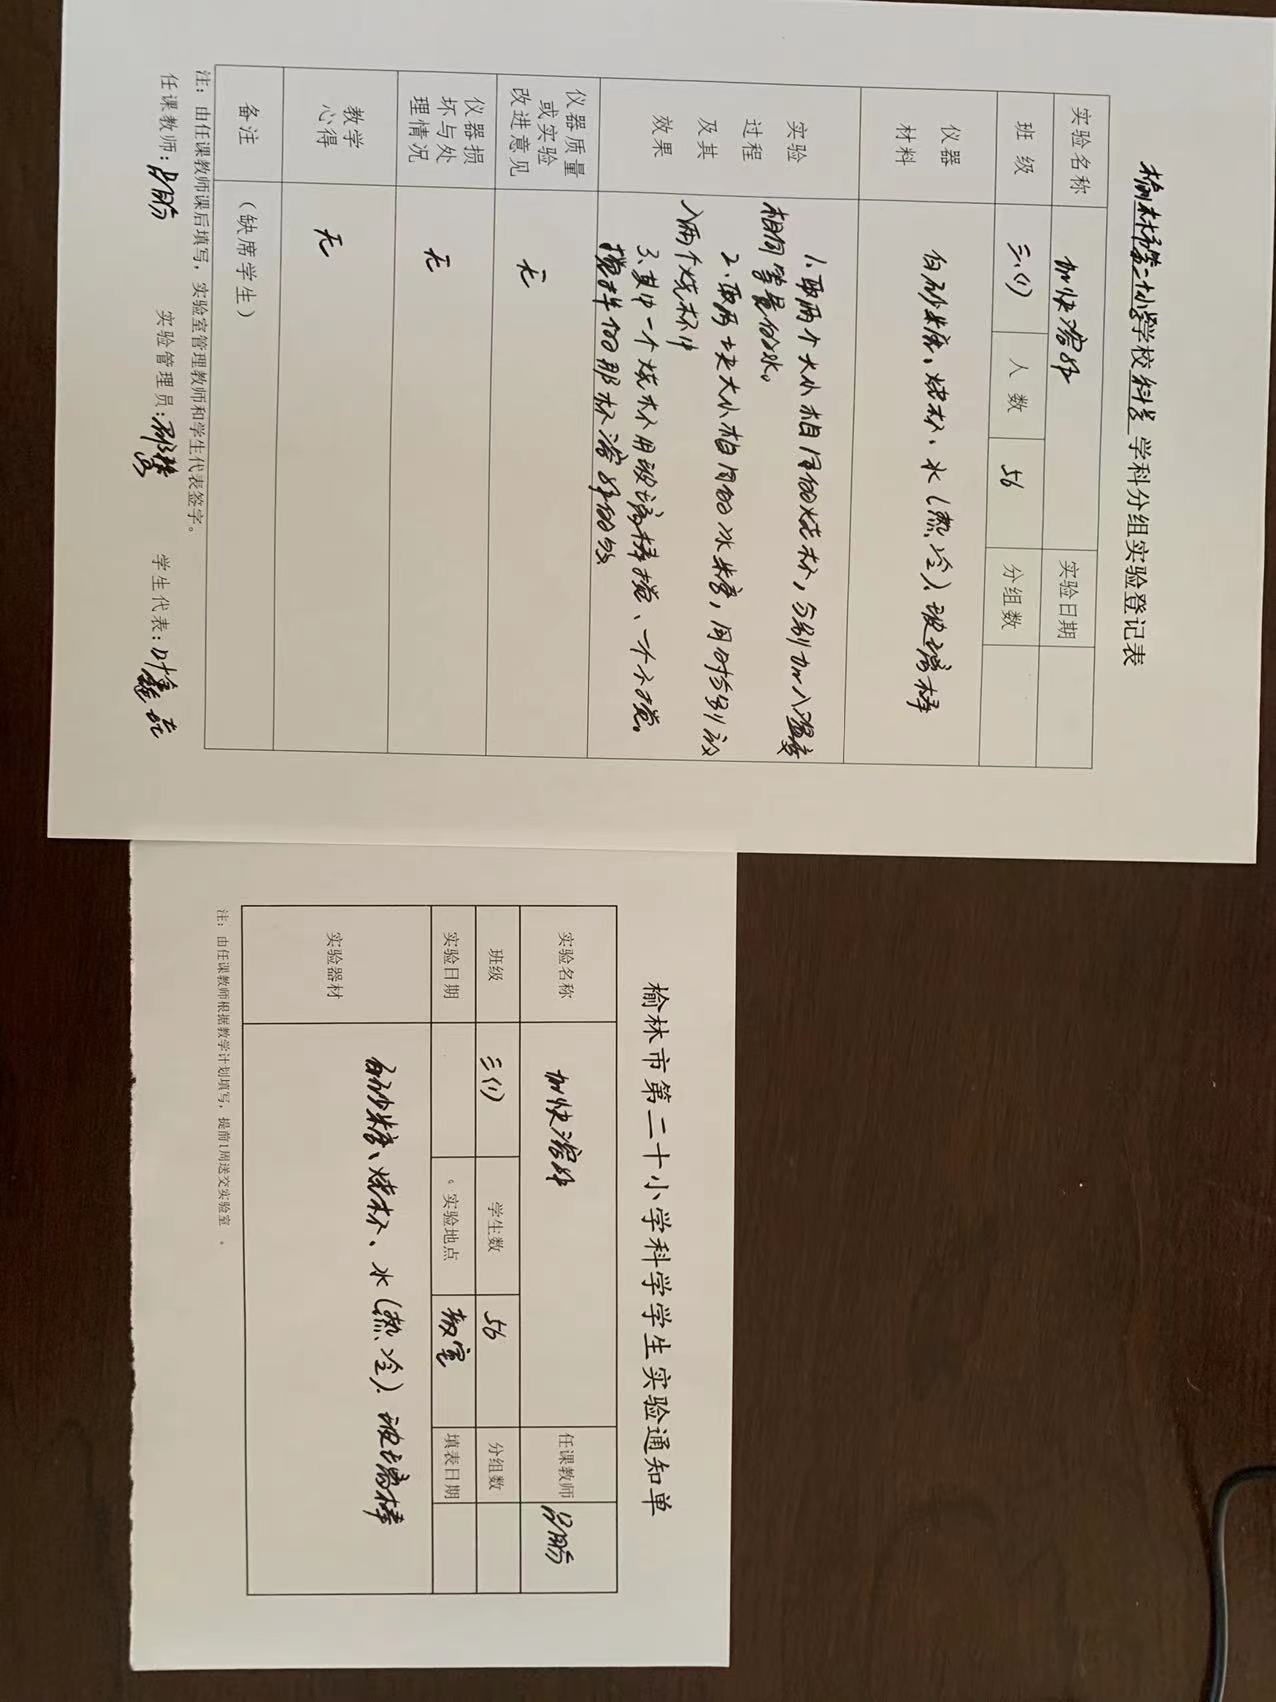 榆林市第二十小学学校科学学科分组实验登记表
实验名称 加快溶解 实验日期
班 级 三(1) 人 数 56 分组数
仪器材料 白砂糖、烧杯、水(热、冷)、玻璃棒
实验过程及其效果
1、取两个大小相同的烧杯,分别加入温度
相同等量的水。
2、取两块大小相同的冰糖,同时分别放
入两个烧杯中
3、其中一个烧杯用玻璃棒搅、一个不搅。
搅拌的那杯溶解的快
仪器质量或实验改进意见 无
仪器损坏与处理情况 无
教学心得 无
备注 (缺席学生)
注:由任课教师课后填写,实验室管理教师和学生代表签字。
任课教师: 实验管理员: 学生代表:
榆林市第二十小学科学学生实验通知单
实验名称 加快溶解 任课教师
班级 三(1) 学生数 56 分组数
实验日期 实验地点 教室 填表日期
实验器材 白砂糖、烧杯、水(热、冷)、玻璃棒
注:由任课教师根据教学计划填写,提前1周送交实验室。